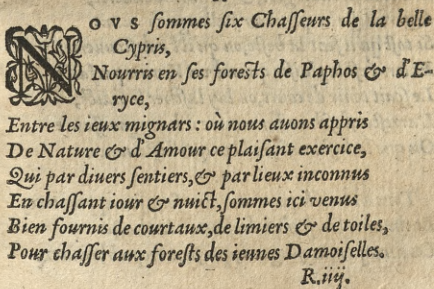 NOVS sommes ſix Chaſſeurs de la belle
Cypris,
Nourris en ſes foreſts de Paphos & d'E-
ryce,
Entre les ieux mignars : où nous auons appris
De Nature & d'Amour ce plaiſant exercice,
Qui par diuers ſentiers, & par lieux inconnus
En chaſſant iour & nuict, ſommes ici venus
Bien fournis de courtaux, de limiers & de toiles,
Pour chaſſer aux foreſts des ieunes Damoiſelles.
R.iiij.